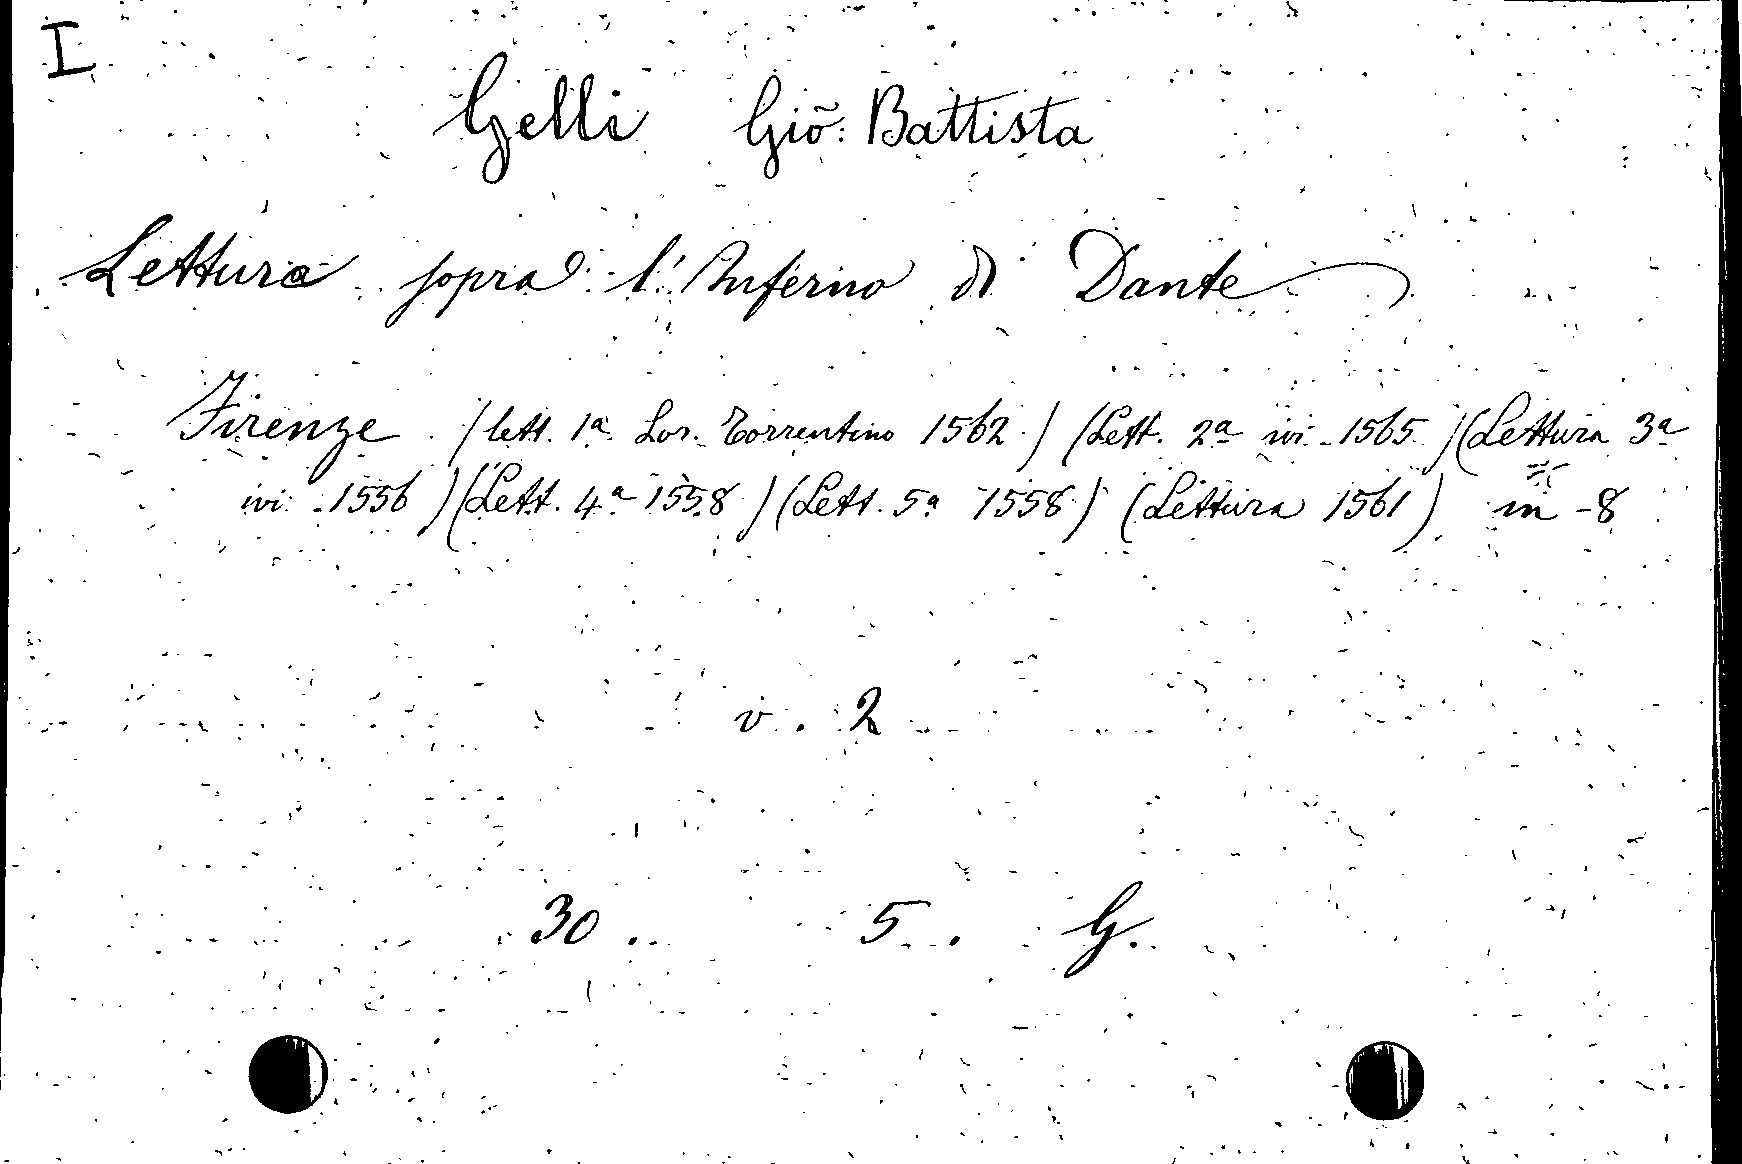 I
Gelli Giõ: Battista
Lettura sopra l'Inferno di Dante
Firenze (lett. 1ª Lor. Torrentino 1562) (Lett. 2ª ivi 1565) (Lettura 3ª
ivi 1556) (Lett. 4ª 1558) (Lett. 5ª 1558) (Lettura 1561) in-8
v. 2
30. 5. G.